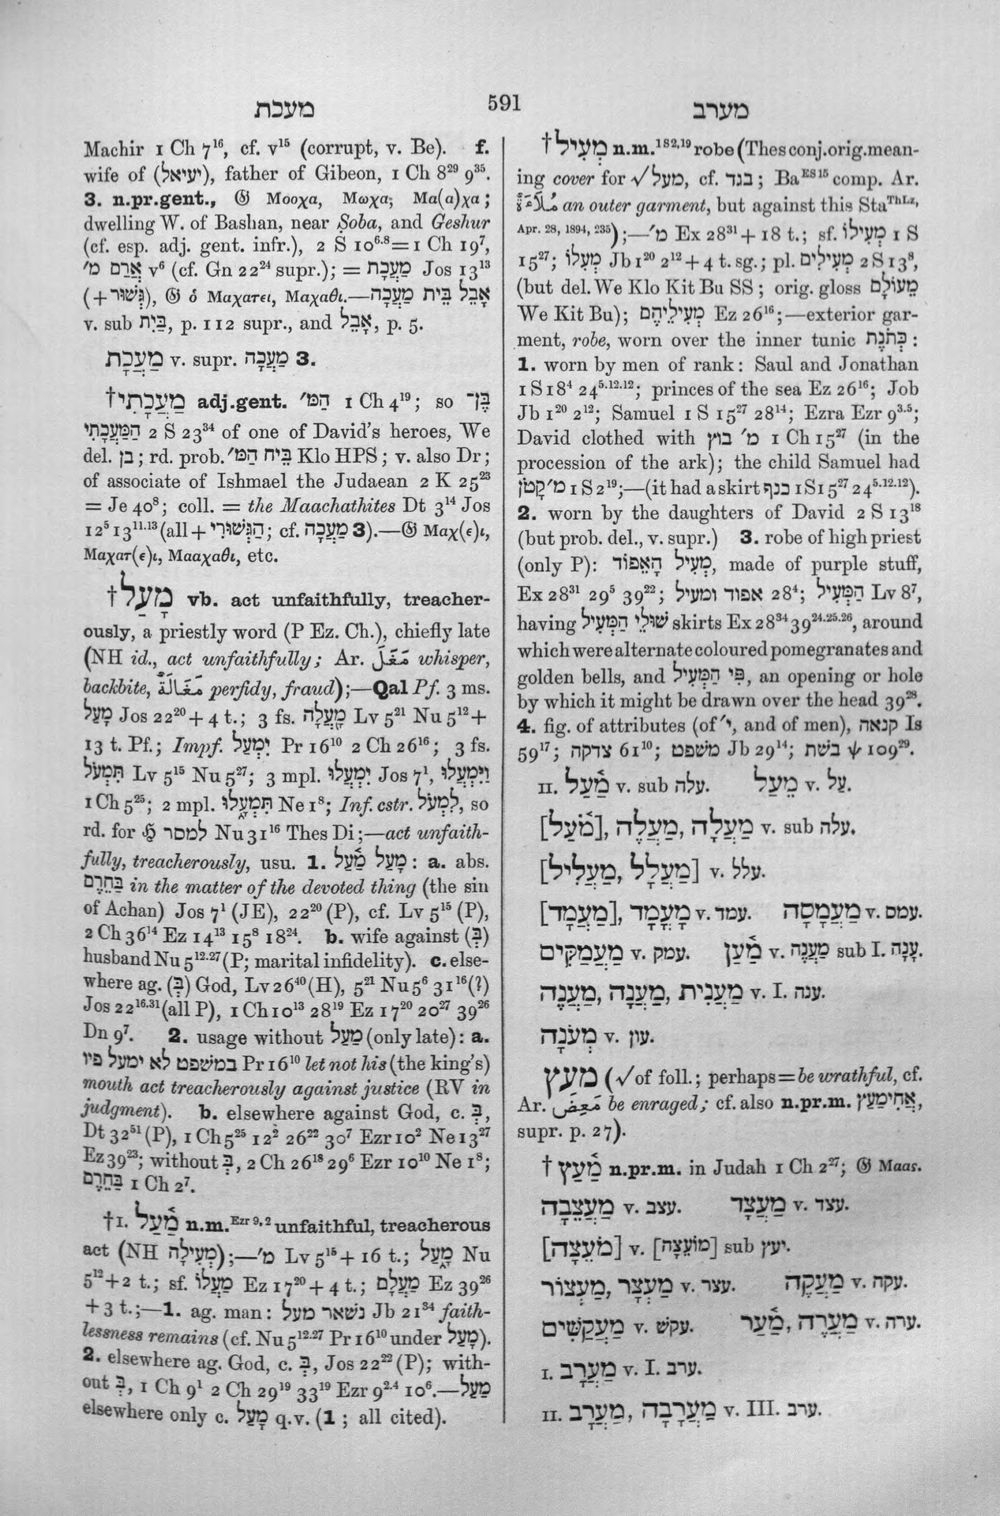 מעכת
591
מערב
Machir 1 Ch 7¹⁶, cf. v¹⁵ (corrupt, v. Be). f.
wife of (יעיאל), father of Gibeon, 1 Ch 8²⁹ 9³⁵.
3. n.pr.gent., 𝔊 Μοοχα, Μωχα; Μα(α)χα;
dwelling W. of Bashan, near Ṣoba, and Geshur
(cf. esp. adj. gent. infr.), 2 S 10⁶·⁸=1 Ch 19⁷,
אֲרַם מ׳ v⁶ (cf. Gn 22²⁴ supr.); = מַעֲכָת Jos 13¹³
(+גְּשׁוּר), 𝔊 ὁ Μαχατει, Μαχαθι.—אָבֵל בֵּית מַעֲכָה
v. sub בַּיִת, p. 112 supr., and אָבֵל, p. 5.
מַעֲכָת v. supr. מַעֲכָה 3.
†מַעֲכָתִי adj.gent. הַמּ׳ 1 Ch 4¹⁹; so בֶּן־
הַמַּעֲכָתִי 2 S 23³⁴ of one of David's heroes, We
del. בן; rd. prob. בֵּית הַמּ׳ Klo HPS; v. also Dr;
of associate of Ishmael the Judaean 2 K 25²³
= Je 40⁸; coll. = the Maachathites Dt 3¹⁴ Jos
12⁵ 13¹¹·¹³ (all + הַגְּשׁוּרִי; cf. מַעֲכָה 3).—𝔊 Μαχ(ε)ι,
Μαχατ(ε)ι, Μααχαθι, etc.
†מָעַל vb. act unfaithfully, treacher-
ously, a priestly word (P Ez. Ch.), chiefly late
(NH id., act unfaithfully; Ar. مَغَلَ whisper,
backbite, مَغَالَةٌ perfidy, fraud);—Qal Pf. 3 ms.
מָעַל Jos 22²⁰+4 t.; 3 fs. מָעֲלָה Lv 5²¹ Nu 5¹²+
13 t. Pf.; Impf. יִמְעַל Pr 16¹⁰ 2 Ch 26¹⁶; 3 fs.
תִּמְעֹל Lv 5¹⁵ Nu 5²⁷; 3 mpl. וַיִּמְעֲלוּ Jos 7¹, יִמְעֲלוּ
1 Ch 5²⁵; 2 mpl. תִּמְעָלוּ Ne 1⁸; Inf. cstr. לִמְעֹל, so
rd. for 𝔥 למסר Nu 31¹⁶ Thes Di;—act unfaith-
fully, treacherously, usu. 1. מָעַל מַעַל: a. abs.
בַּחֵרֶם in the matter of the devoted thing (the sin
of Achan) Jos 7¹ (JE), 22²⁰ (P), cf. Lv 5¹⁵ (P),
2 Ch 36¹⁴ Ez 14¹³ 15⁸ 18²⁴. b. wife against (בְּ)
husband Nu 5¹²·²⁷ (P; marital infidelity). c. else-
where ag. (בְּ) God, Lv 26⁴⁰ (H), 5²¹ Nu 5⁶ 31¹⁶(?)
Jos 22¹⁶·³¹ (all P), 1 Ch 10¹³ 28¹⁹ Ez 17²⁰ 20²⁷ 39²⁶
Dn 9⁷. 2. usage without מַעַל (only late): a.
במשפט לא ימעל פיו Pr 16¹⁰ let not his (the king's)
mouth act treacherously against justice (RV in
judgment). b. elsewhere against God, c. בְּ,
Dt 32⁵¹ (P), 1 Ch 5²⁵ 12² 26²² 30⁷ Ezr 10² Ne 13²⁷
Ez 39²³; without בְּ, 2 Ch 26¹⁸ 29⁶ Ezr 10¹⁰ Ne 1⁸;
בַּחֵרֶם 1 Ch 2⁷.
†I. מַעַל n.m.ᴱᶻʳ ⁹·² unfaithful, treacherous
act (NH מְעִילָה);—מ׳ Lv 5¹⁵+16 t.; מָעַל Nu
5¹²+2 t.; sf. מַעֲלוֹ Ez 17²⁰+4 t.; מַעֲלָם Ez 39²⁶
+3 t.;—1. ag. man: נשאר מעל Jb 21³⁴ faith-
lessness remains (cf. Nu 5¹²·²⁷ Pr 16¹⁰ under מָעַל).
2. elsewhere ag. God, c. בְּ, Jos 22²² (P); with-
out בְּ, 1 Ch 9¹ 2 Ch 29¹⁹ 33¹⁹ Ezr 9²·⁴ 10⁶.—מַעַל
elsewhere only c. מָעַל q.v. (1; all cited).
†מְעִיל n.m.¹ ˢ ²·¹⁹ robe (Thes conj. orig. mean-
ing cover for √מעל, cf. בגד; Baᴱˢ ¹⁵ comp. Ar.
an outer garment, but against this Staᵀʰᴸᶻ,
Apr. 28, 1894, 235);—מ׳ Ex 28³¹+18 t.; sf. מְעִילוֹ 1 S
15²⁷; מְעִלוֹ Jb 1²⁰ 2¹²+4 t. sg.; pl. מְעִילִים 2 S 13⁸,
(but del. We Klo Kit Bu SS; orig. gloss מֵעוֹלָם
We Kit Bu); מְעִילֵיהֶם Ez 26¹⁶;—exterior gar-
ment, robe, worn over the inner tunic כְּתֹנֶת:
1. worn by men of rank: Saul and Jonathan
1 S 18⁴ 24⁵·¹²·¹²; princes of the sea Ez 26¹⁶; Job
Jb 1²⁰ 2¹²; Samuel 1 S 15²⁷ 28¹⁴; Ezra Ezr 9³·⁵;
David clothed with מ׳ בוץ 1 Ch 15²⁷ (in the
procession of the ark); the child Samuel had
מ׳ קָטֹן 1 S 2¹⁹;—(it had a skirt כנף 1 S 15²⁷ 24⁵·¹²·¹²).
2. worn by the daughters of David 2 S 13¹⁸
(but prob. del., v. supr.) 3. robe of high priest
(only P): מְעִיל הָאֵפוֹד, made of purple stuff,
Ex 28³¹ 29⁵ 39²²; אפוד ומעיל 28⁴; הַמְּעִיל Lv 8⁷,
having שׁוּלֵי הַמְּעִיל skirts Ex 28³⁴ 39²⁴·²⁵·²⁶, around
which were alternate coloured pomegranates and
golden bells, and פִּי הַמְּעִיל, an opening or hole
by which it might be drawn over the head 39²³.
4. fig. of attributes (of י׳, and of men), קנאה Is
59¹⁷; צדקה 61¹⁰; משפט Jb 29¹⁴; בשת ψ 109²⁹.
II. מַעַל v. sub עלה. מֵעַל v. עַל.
[מֹעַל], מַעֲלֶה, מַעֲלָה v. sub עלה.
[מַעֲלָל, מַעֲלִיל] v. עלל.
[מַעֲמָד], מָעֳמָד v. עמד. מַעֲמָסָה v. עמס.
מַעֲמַקִּים v. עמק. מַעַן v. מַעֲנֶה sub I. עָנָה.
מַעֲנֶה, מַעֲנָה, מַעֲנִית v. I. ענה.
מְעֹנָה v. עון.
מעץ (√of foll.; perhaps=be wrathful, cf.
Ar. مَعِضَ be enraged; cf. also n.pr.m. אֲחִימַעַץ,
supr. p. 27).
†מַעַץ n.pr.m. in Judah 1 Ch 2²⁷; 𝔊 Μαας.
מַעֲצֵבָה v. עצב. מַעֲצָד v. עצד.
[מֹעֵצָה] v. [מוֹעֵצָה] sub יעץ.
מַעְצוֹר, מַעְצָר v. עצר. מַעֲקֶה v. עקה.
מַעֲקַשִּׁים v. עקשׁ. מַעַר, מַעֲרֶה v. ערה.
I. מַעֲרָב v. I. ערב.
II. מַעֲרָב, מַעֲרָבָה v. III. ערב.